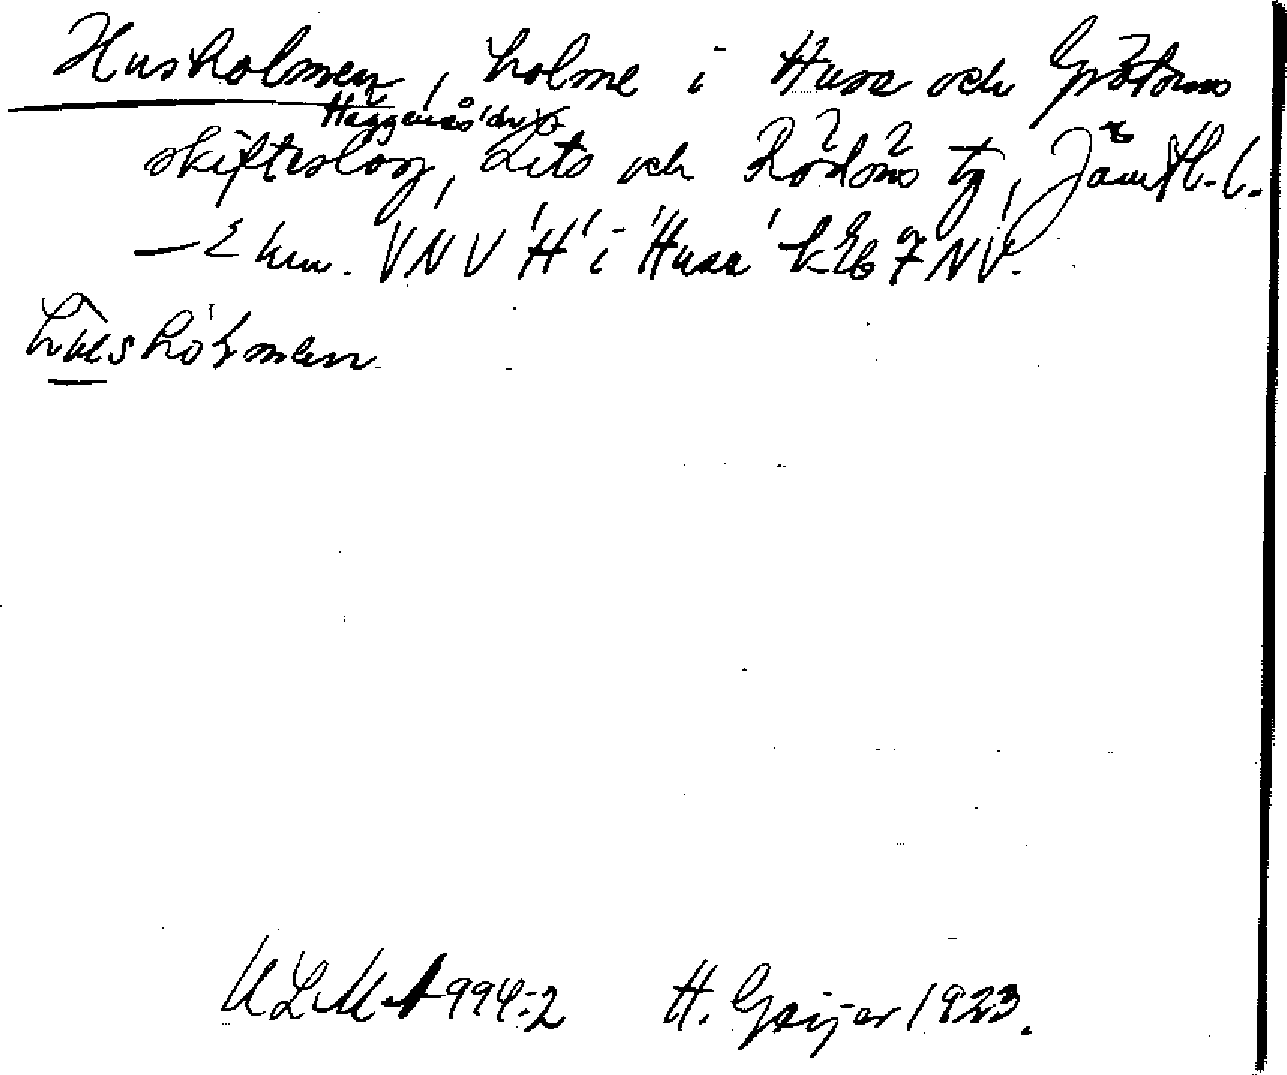 Husholmen, holme i Husa och Grötoms
Häggenås' dns
skifteslag, Lits och Rödöns tg, Jämtl. l.
— 2 km. VNV 'H' i 'Husa' kEb 7 NV.
hu̇shól̥mɐn
ULMA 994:2 H. Geijer 1923.